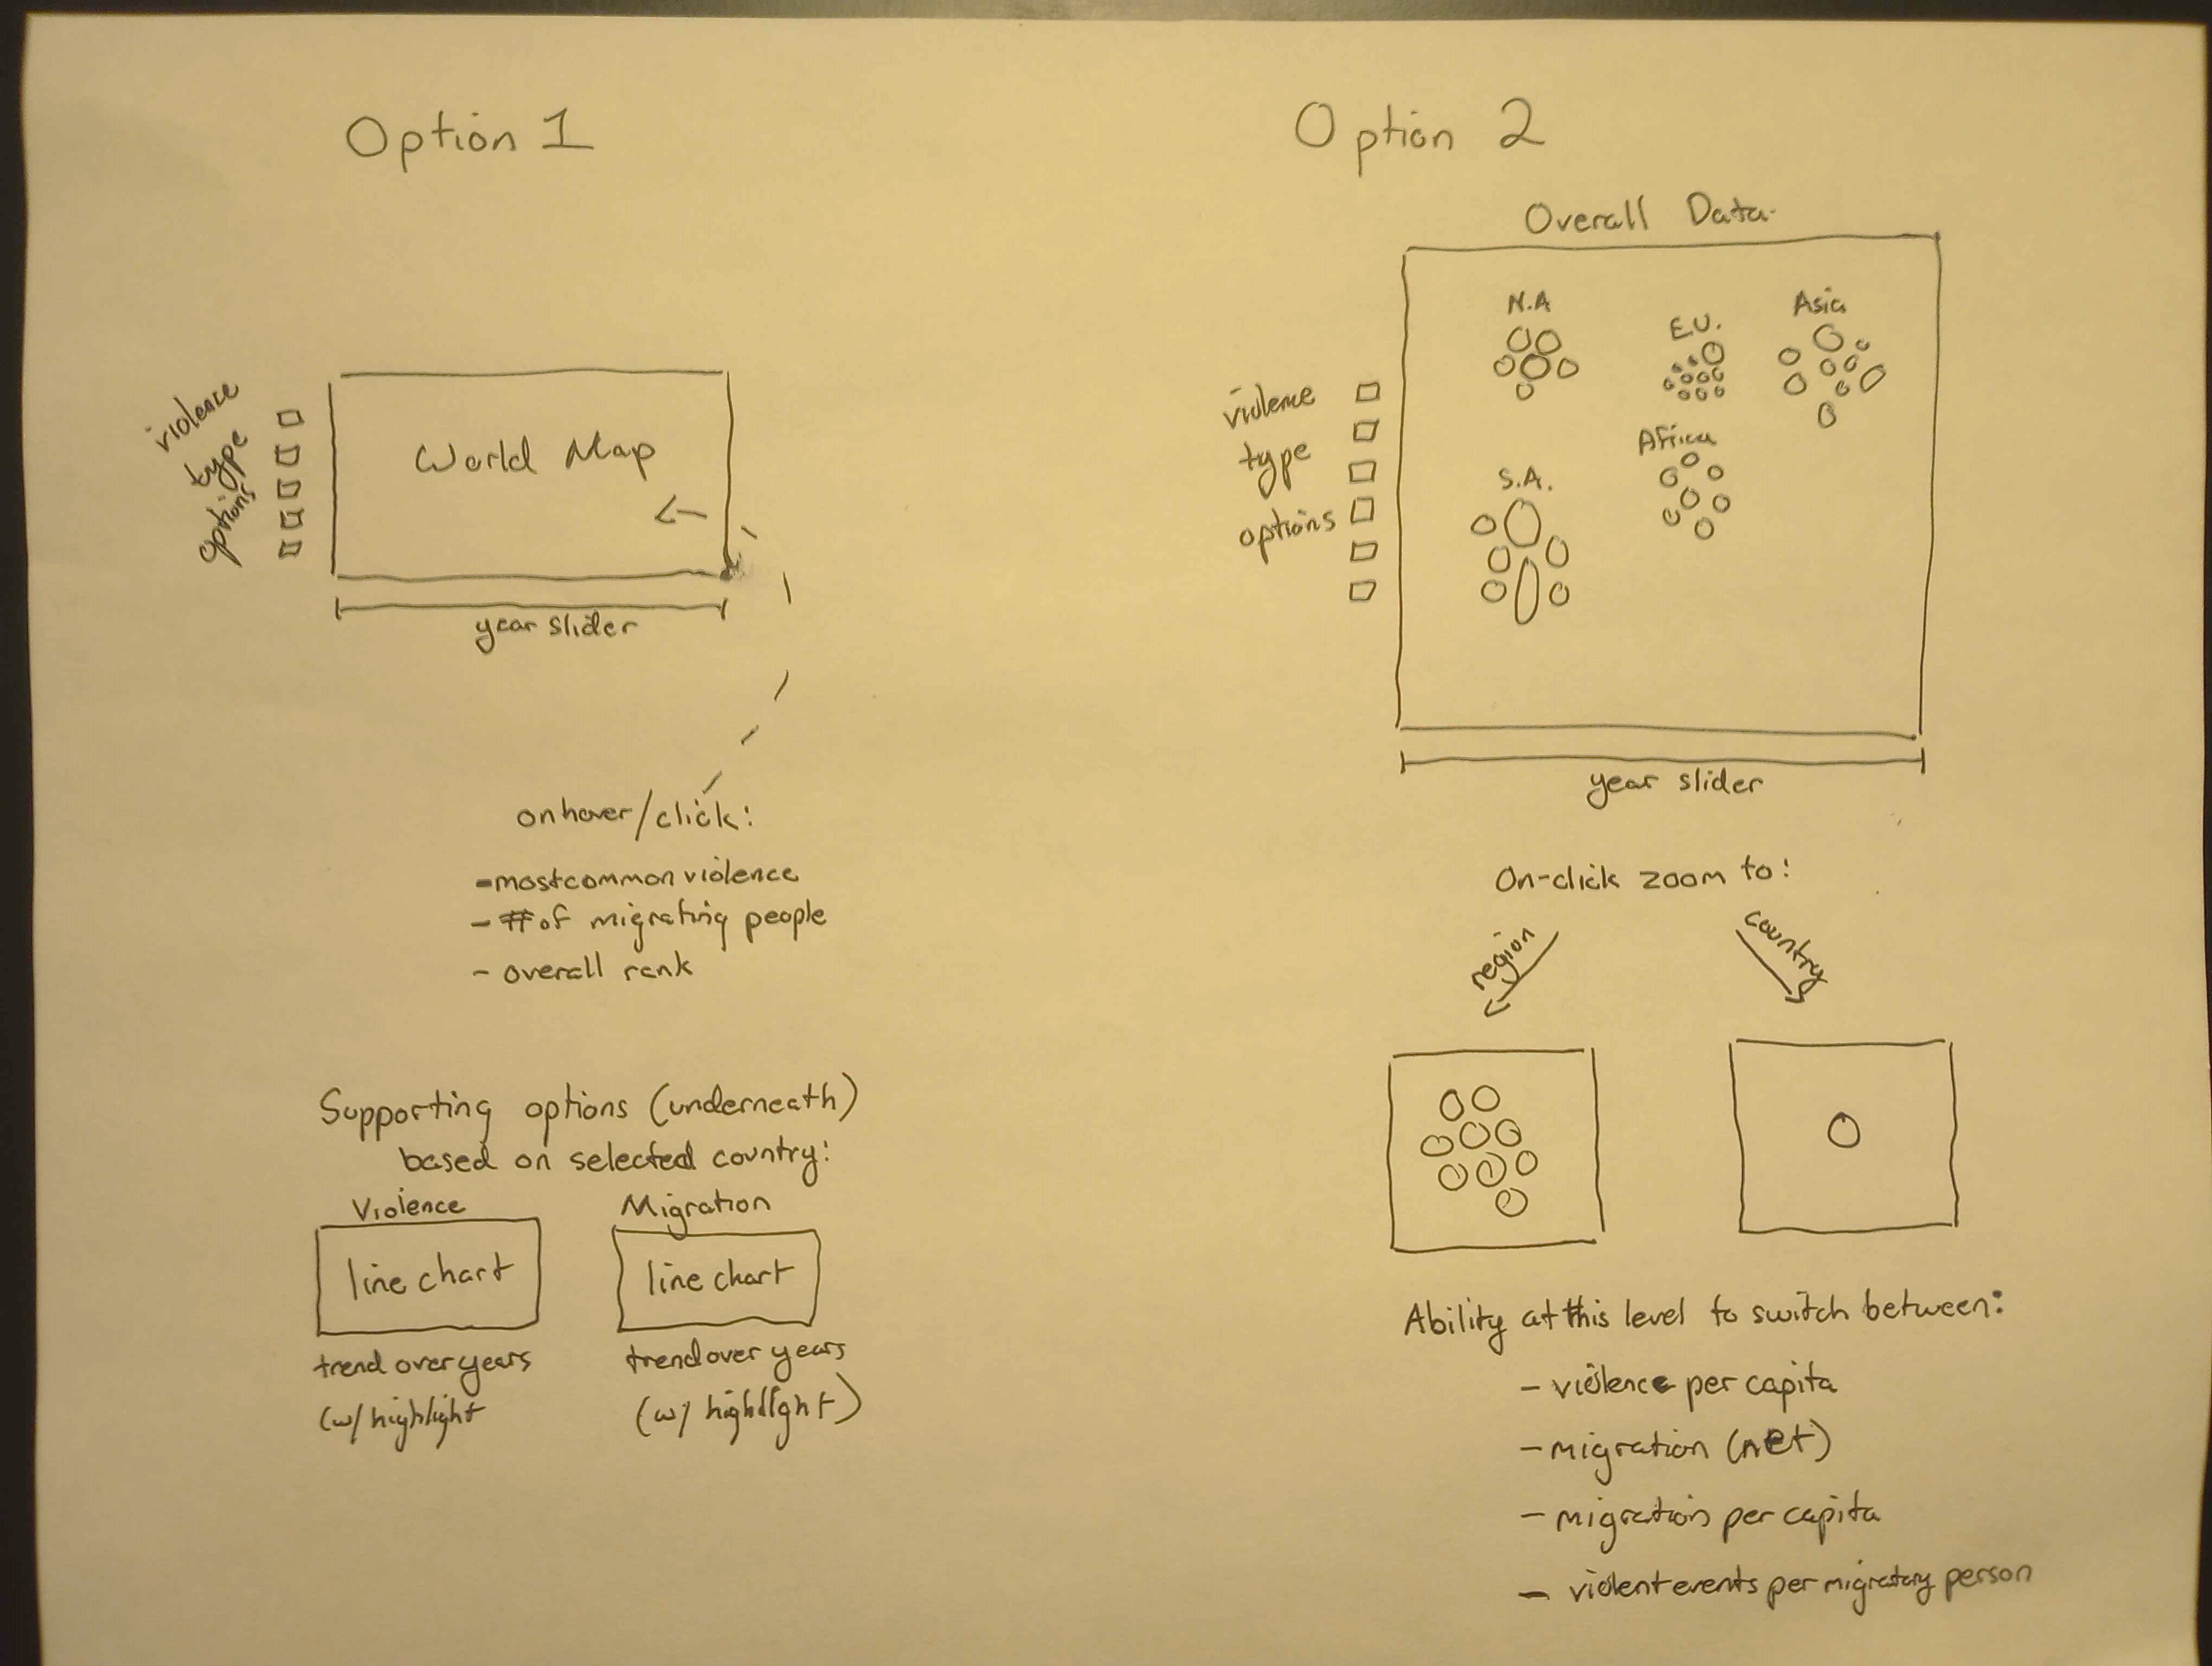 Option 1
violence
type
options
World Map
year slider
onhover/click:
- most common violence
- # of migrating people
- overall rank
Supporting options (underneath)
based on selected country:
Violence
line chart
trend over years
(w/ highlight
Migration
line chart
trend over years
(w/ highlight)
Option 2
Overall Data
N.A
E.U.
Asia
Africa
S.A.
violence
type
options
year slider
On-click zoom to:
region
country
Ability at this level to switch between:
- violence per capita
- migration (net)
- migration per capita
- violent events per migratory person